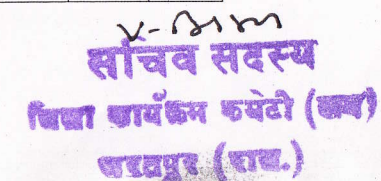 सचिव सदस्य
जिला कार्यक्रम कमेटी (अय)
भरतपुर (राज.)